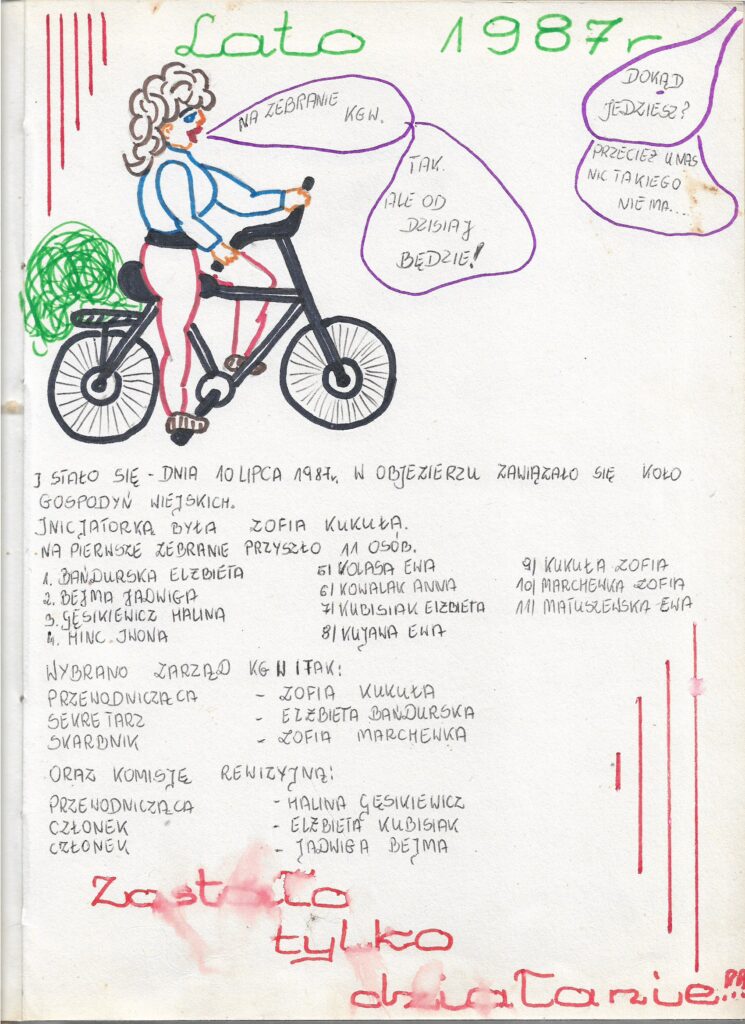 Lato 1987r
NA ZEBRANIE KGW.
DOKĄD
JEDZIESZ?
PRZECIEŻ U NAS
NIC TAKIEGO
NIE MA...
TAK.
ALE OD
DZISIAJ
BĘDZIE!
I STAŁO SIĘ - DNIA 10 LIPCA 1987r. W OBJEZIERZU ZAWIĄZAŁO SIĘ KOŁO
GOSPODYŃ WIEJSKICH.
INICJATORKĄ BYŁA ZOFIA KUKUŁA.
NA PIERWSZE ZEBRANIE PRZYSZŁO 11 OSÓB.
1. BANDURSKA ELŻBIETA
2. BEJMA JADWIGA
3. GĘSIKIEWICZ HALINA
4. HINC IWONA
5/ KOLASA EWA
6/ KOWALAK ANNA
7/ KUBISIAK ELŻBIETA
8/ KUJAWA EWA
9/ KUKUŁA ZOFIA
10/ MARCHEWKA ZOFIA
11/ MATUSZEWSKA EWA
WYBRANO ZARZĄD KGW I TAK:
PRZEWODNICZĄCA - ZOFIA KUKUŁA
SEKRETARZ - ELŻBIETA BANDURSKA
SKARBNIK - ZOFIA MARCHEWKA
ORAZ KOMISJĘ REWIZYJNĄ:
PRZEWODNICZĄCA - HALINA GĘSIKIEWICZ
CZŁONEK - ELŻBIETA KUBISIAK
CZŁONEK - JADWIGA BEJMA
Zostało
tylko
działanie...